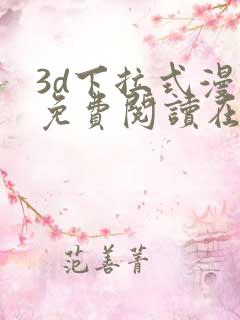 3d下拉式漫
免費閱讀在
范善菁